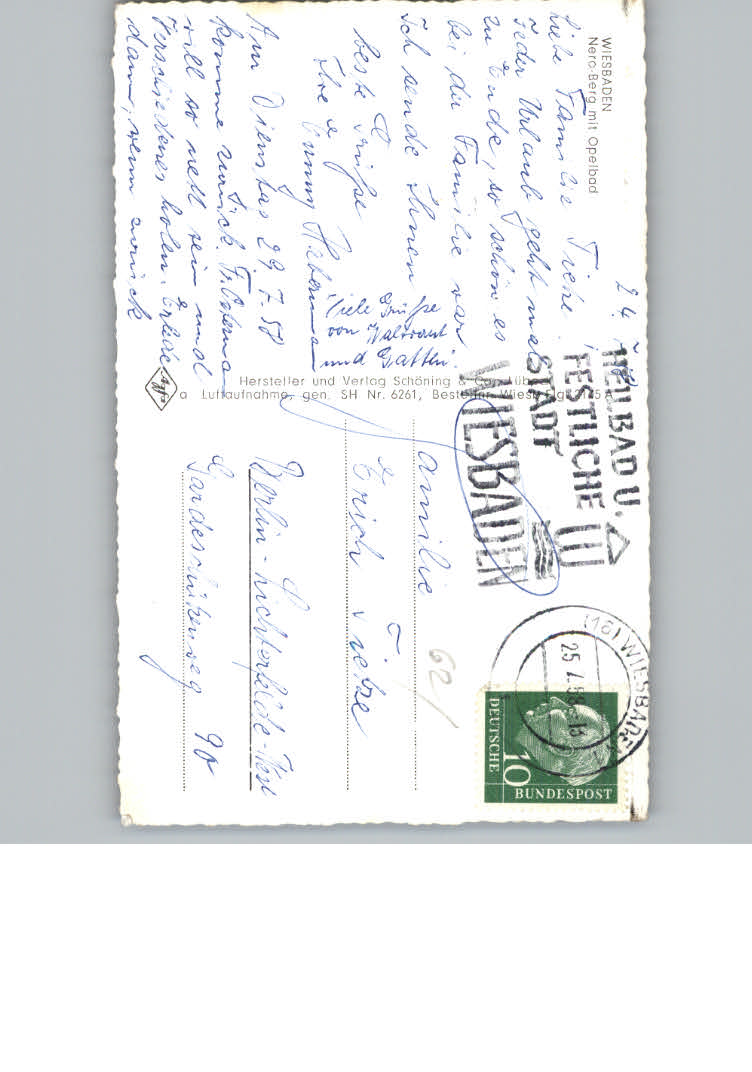 WIESBADEN
Nero-Berg mit Opelbad
24.
Liebe Familie Tietze!
Jeder Urlaub geht mal
zu Ende, so schön es
bei der Familie war
Ich sende Ihnen
beste Grüße
Ihre
Am Dienstag 29.7.58
komme zurück.
will so nett sein und
Verschiedenes holen.
dann, wenn zurück
Viele Grüße
von Waltraut
und Gatten.
Hersteller und Verlag Schöning & Co., Lübeck
Luftaufnahme, gen. SH Nr. 6261, Bestell-Nr. Wiesb.
Agfa
HEILBAD U.
FESTLICHE
STADT
WIESBADEN
(16) WIESBADEN
25.7.58
DEUTSCHE
BUNDESPOST
10
62
Familie
Erich Tietze
Berlin-Lichterfelde-West
Gardeschützenweg 90